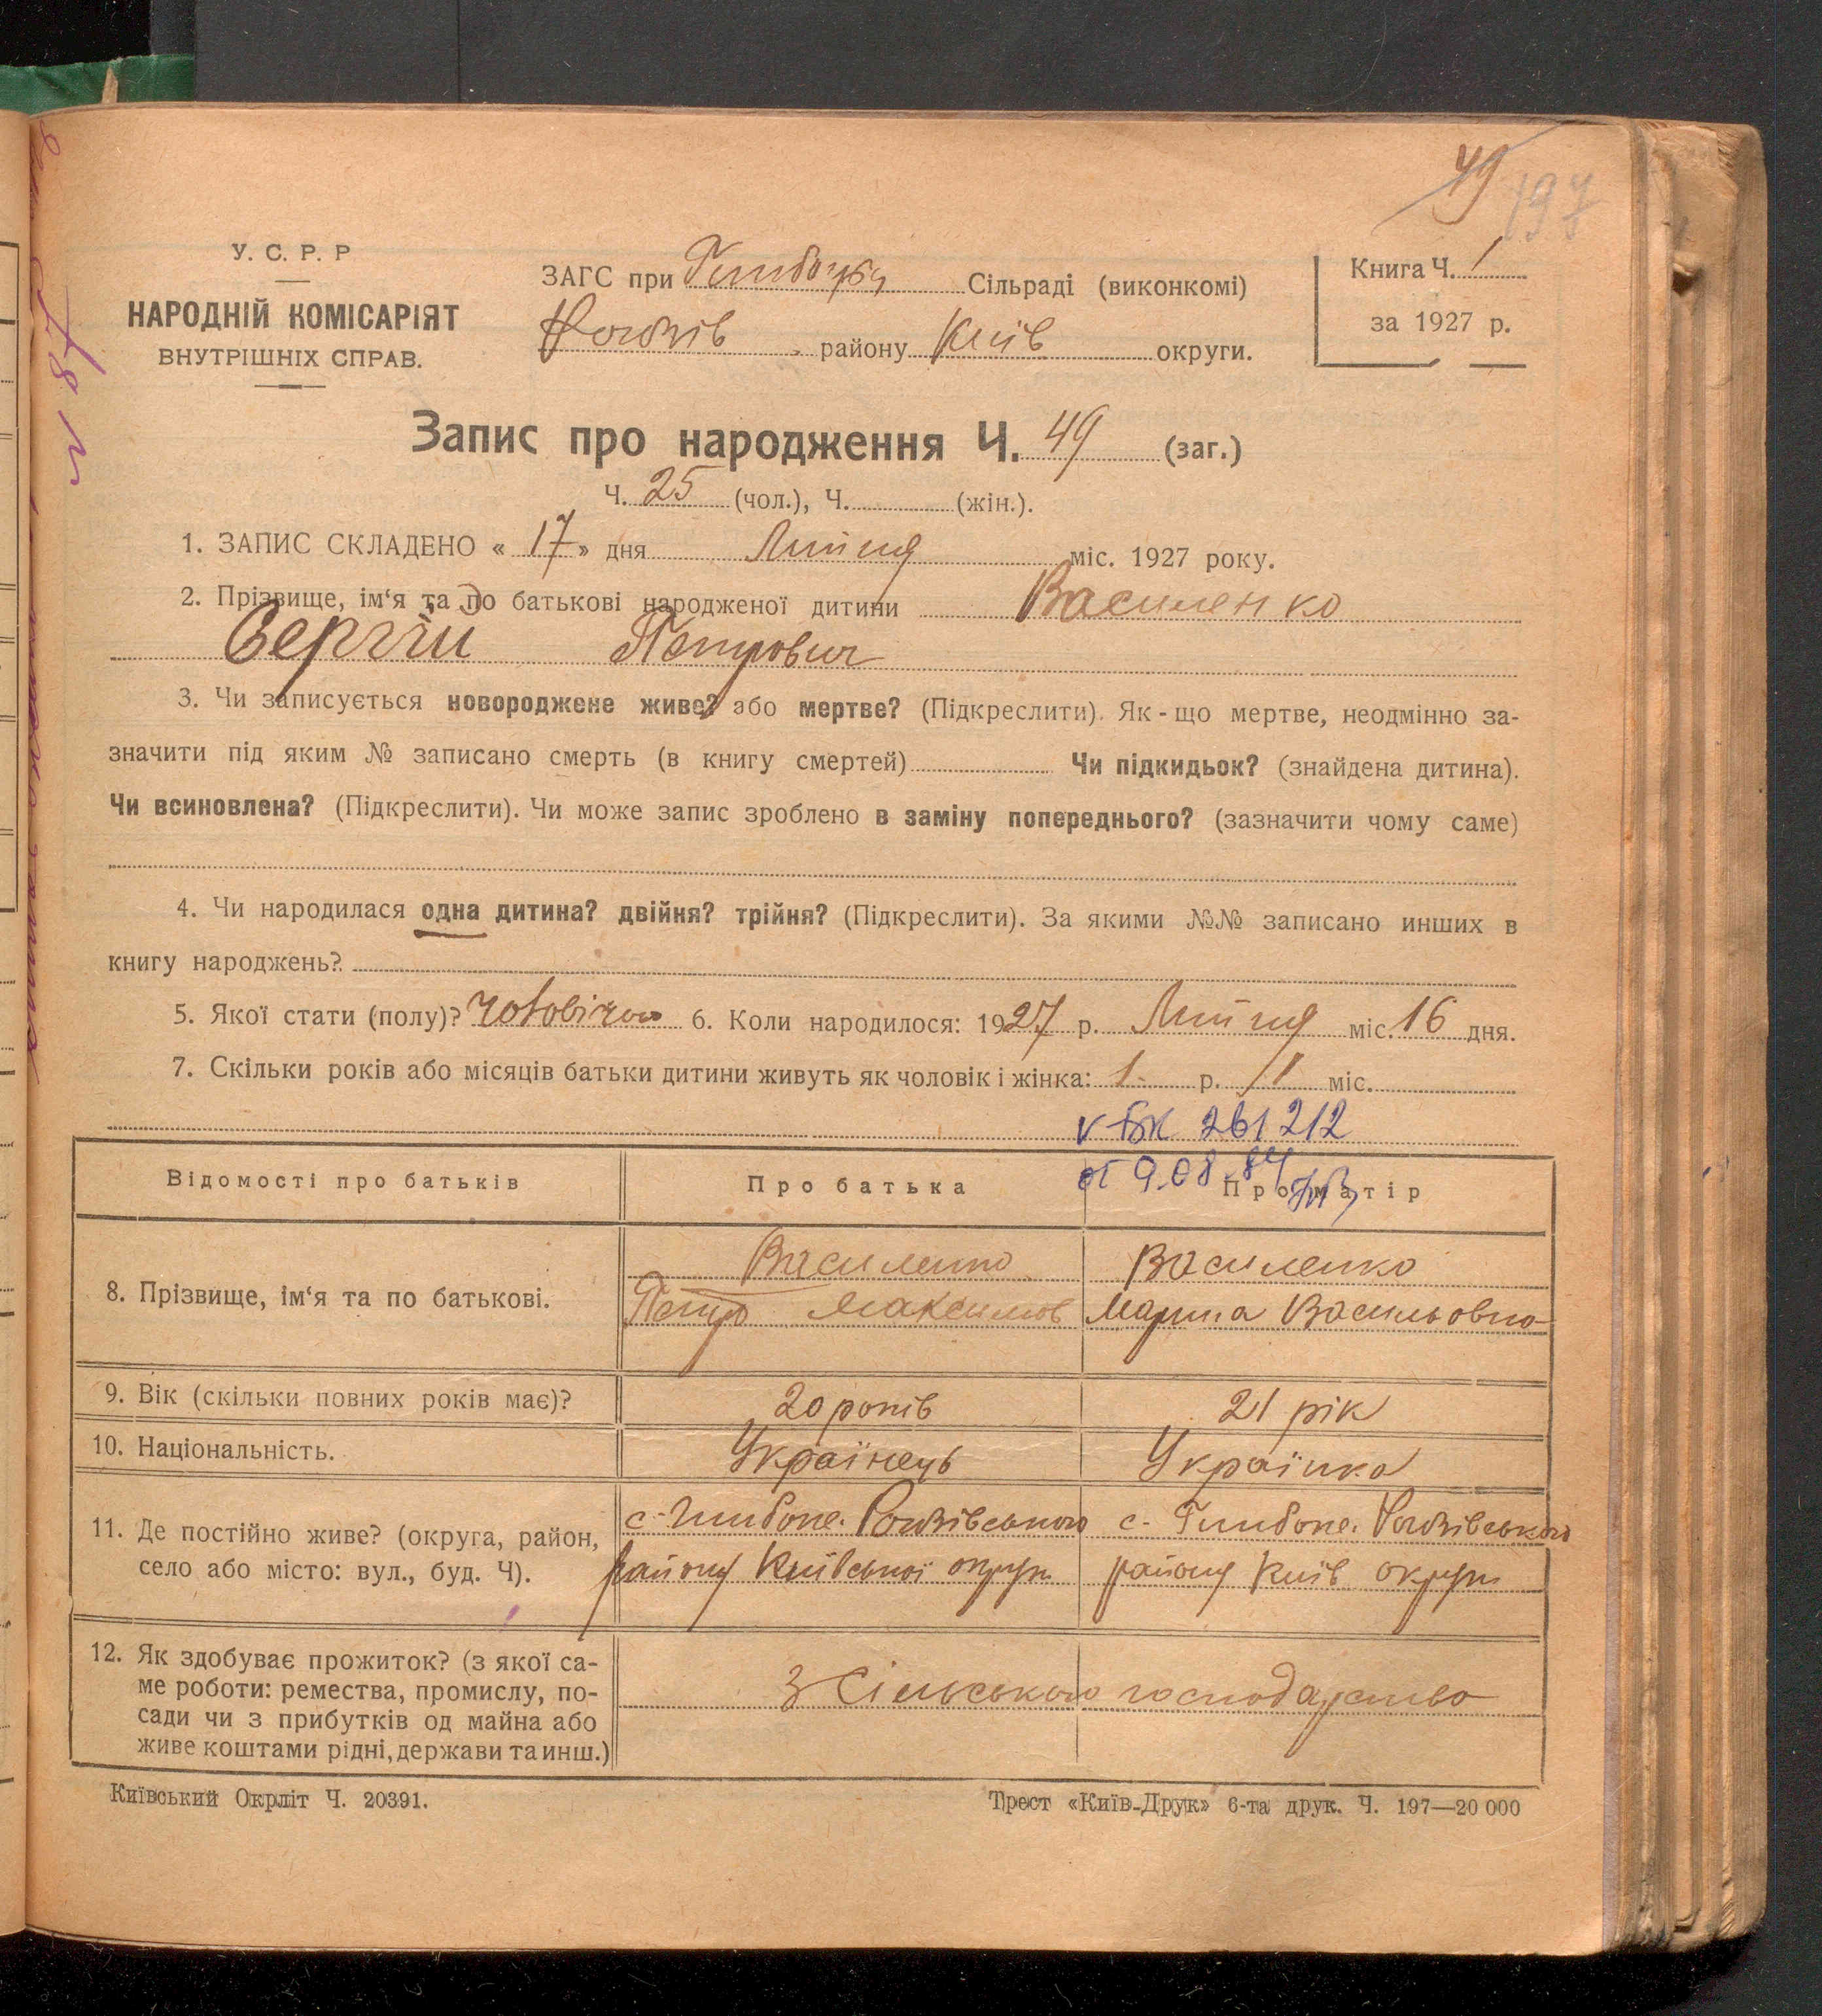 49
197
У. С. Р. Р
НАРОДНІЙ КОМІСАРІЯТ
ВНУТРІШНІХ СПРАВ.
ЗАГС при Сільраді (виконкомі)
району Київ округи.
Книга Ч. 1
за 1927 р.
Запис про народження Ч. 49 (заг.)
Ч. 25 (чол.), Ч. (жін.).
1. ЗАПИС СКЛАДЕНО « 17 » дня Липня міс. 1927 року.
2. Прізвище, ім‘я та по батькові народженої дитини Василенко
Сергій Петрович
3. Чи записується новороджене живе? або мертве? (Підкреслити). Як-що мертве, неодмінно за-
значити під яким № записано смерть (в книгу смертей) Чи підкидьок? (знайдена дитина).
Чи всиновлена? (Підкреслити). Чи може запис зроблено в заміну попереднього? (зазначити чому саме)
4. Чи народилася одна дитина? двійня? трійня? (Підкреслити). За якими №№ записано инших в
книгу народжень?
5. Якої стати (полу)? 6. Коли народилося: 1927 р. Липня міс. 16 дня.
7. Скільки років або місяців батьки дитини живуть як чоловік і жінка: 1 р. 1 міс.
V-БК 261212
от 9.08.84
Відомості про батьків
Про батька
Про матір
8. Прізвище, ім‘я та по батькові.
Василенко
Петро Максимов
Василенко
Марина Васильовна
9. Вік (скільки повних років має)?
20 років
21 рік
10. Національність.
Українець
Українка
11. Де постійно живе? (округа, район,
село або місто: вул., буд. Ч).
району Київської округи
району Київ округи
12. Як здобуває прожиток? (з якої са-
ме роботи: ремества, промислу, по-
сади чи з прибутків од майна або
живе коштами рідні, держави та инш.)
З Сільського господарства
Київський Окрліт Ч. 20391.
Трест «Київ-Друк» 6-та друк. Ч. 197—20 000